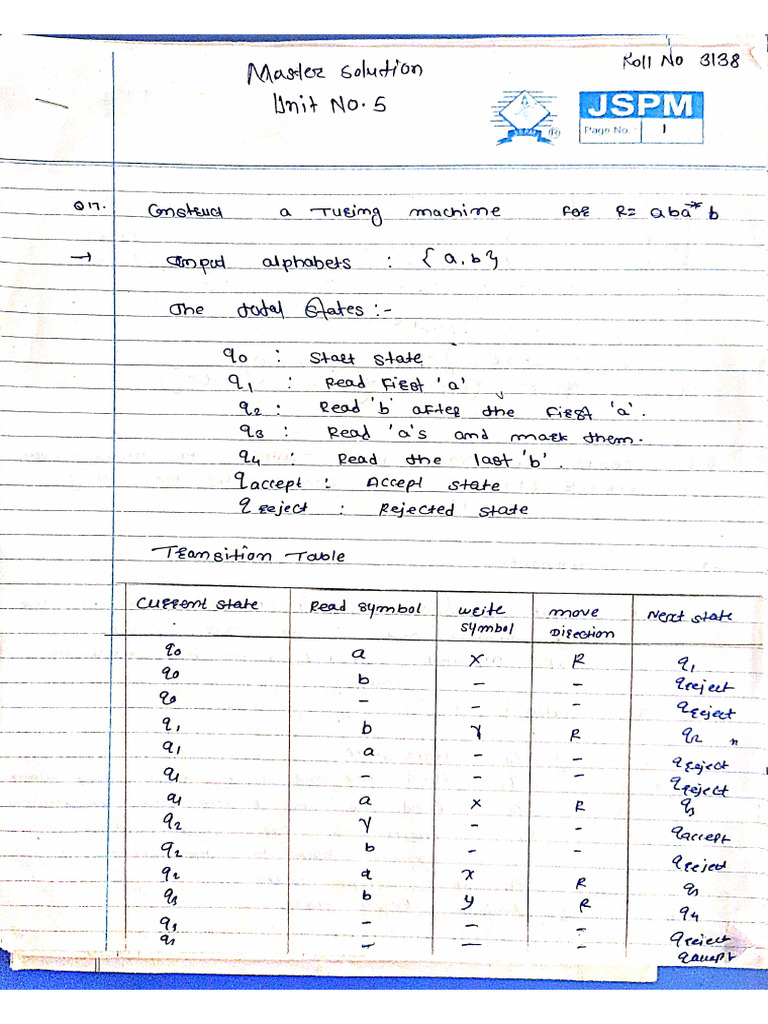 Master Solution
Roll No 3138
Unit No. 5
JSPM
Page No. : 1
Q 17. Construct a Turing machine for R= aba* b
→ Input alphabets : { a, b }
The total States :-
q0 : Start state
q1 : Read first 'a'
q2 : Read 'b' after the first 'a'.
q3 : Read 'a's and mark them.
q4 : Read the last 'b'.
qaccept : Accept state
qreject : Rejected state
Transition Table
Current state Read symbol write symbol move Direction Next state
q0 a x R q1
q0 b - - qreject
q0 - - - qreject
q1 b y R q2
q1 a - - qreject
q1 - - - qreject
q1 a x R q3
q2 y - - qaccept
q2 b - - qreject
q2 a x R q3
q3 b y R q4
q3 - - - qreject
q3 - - - qaccept